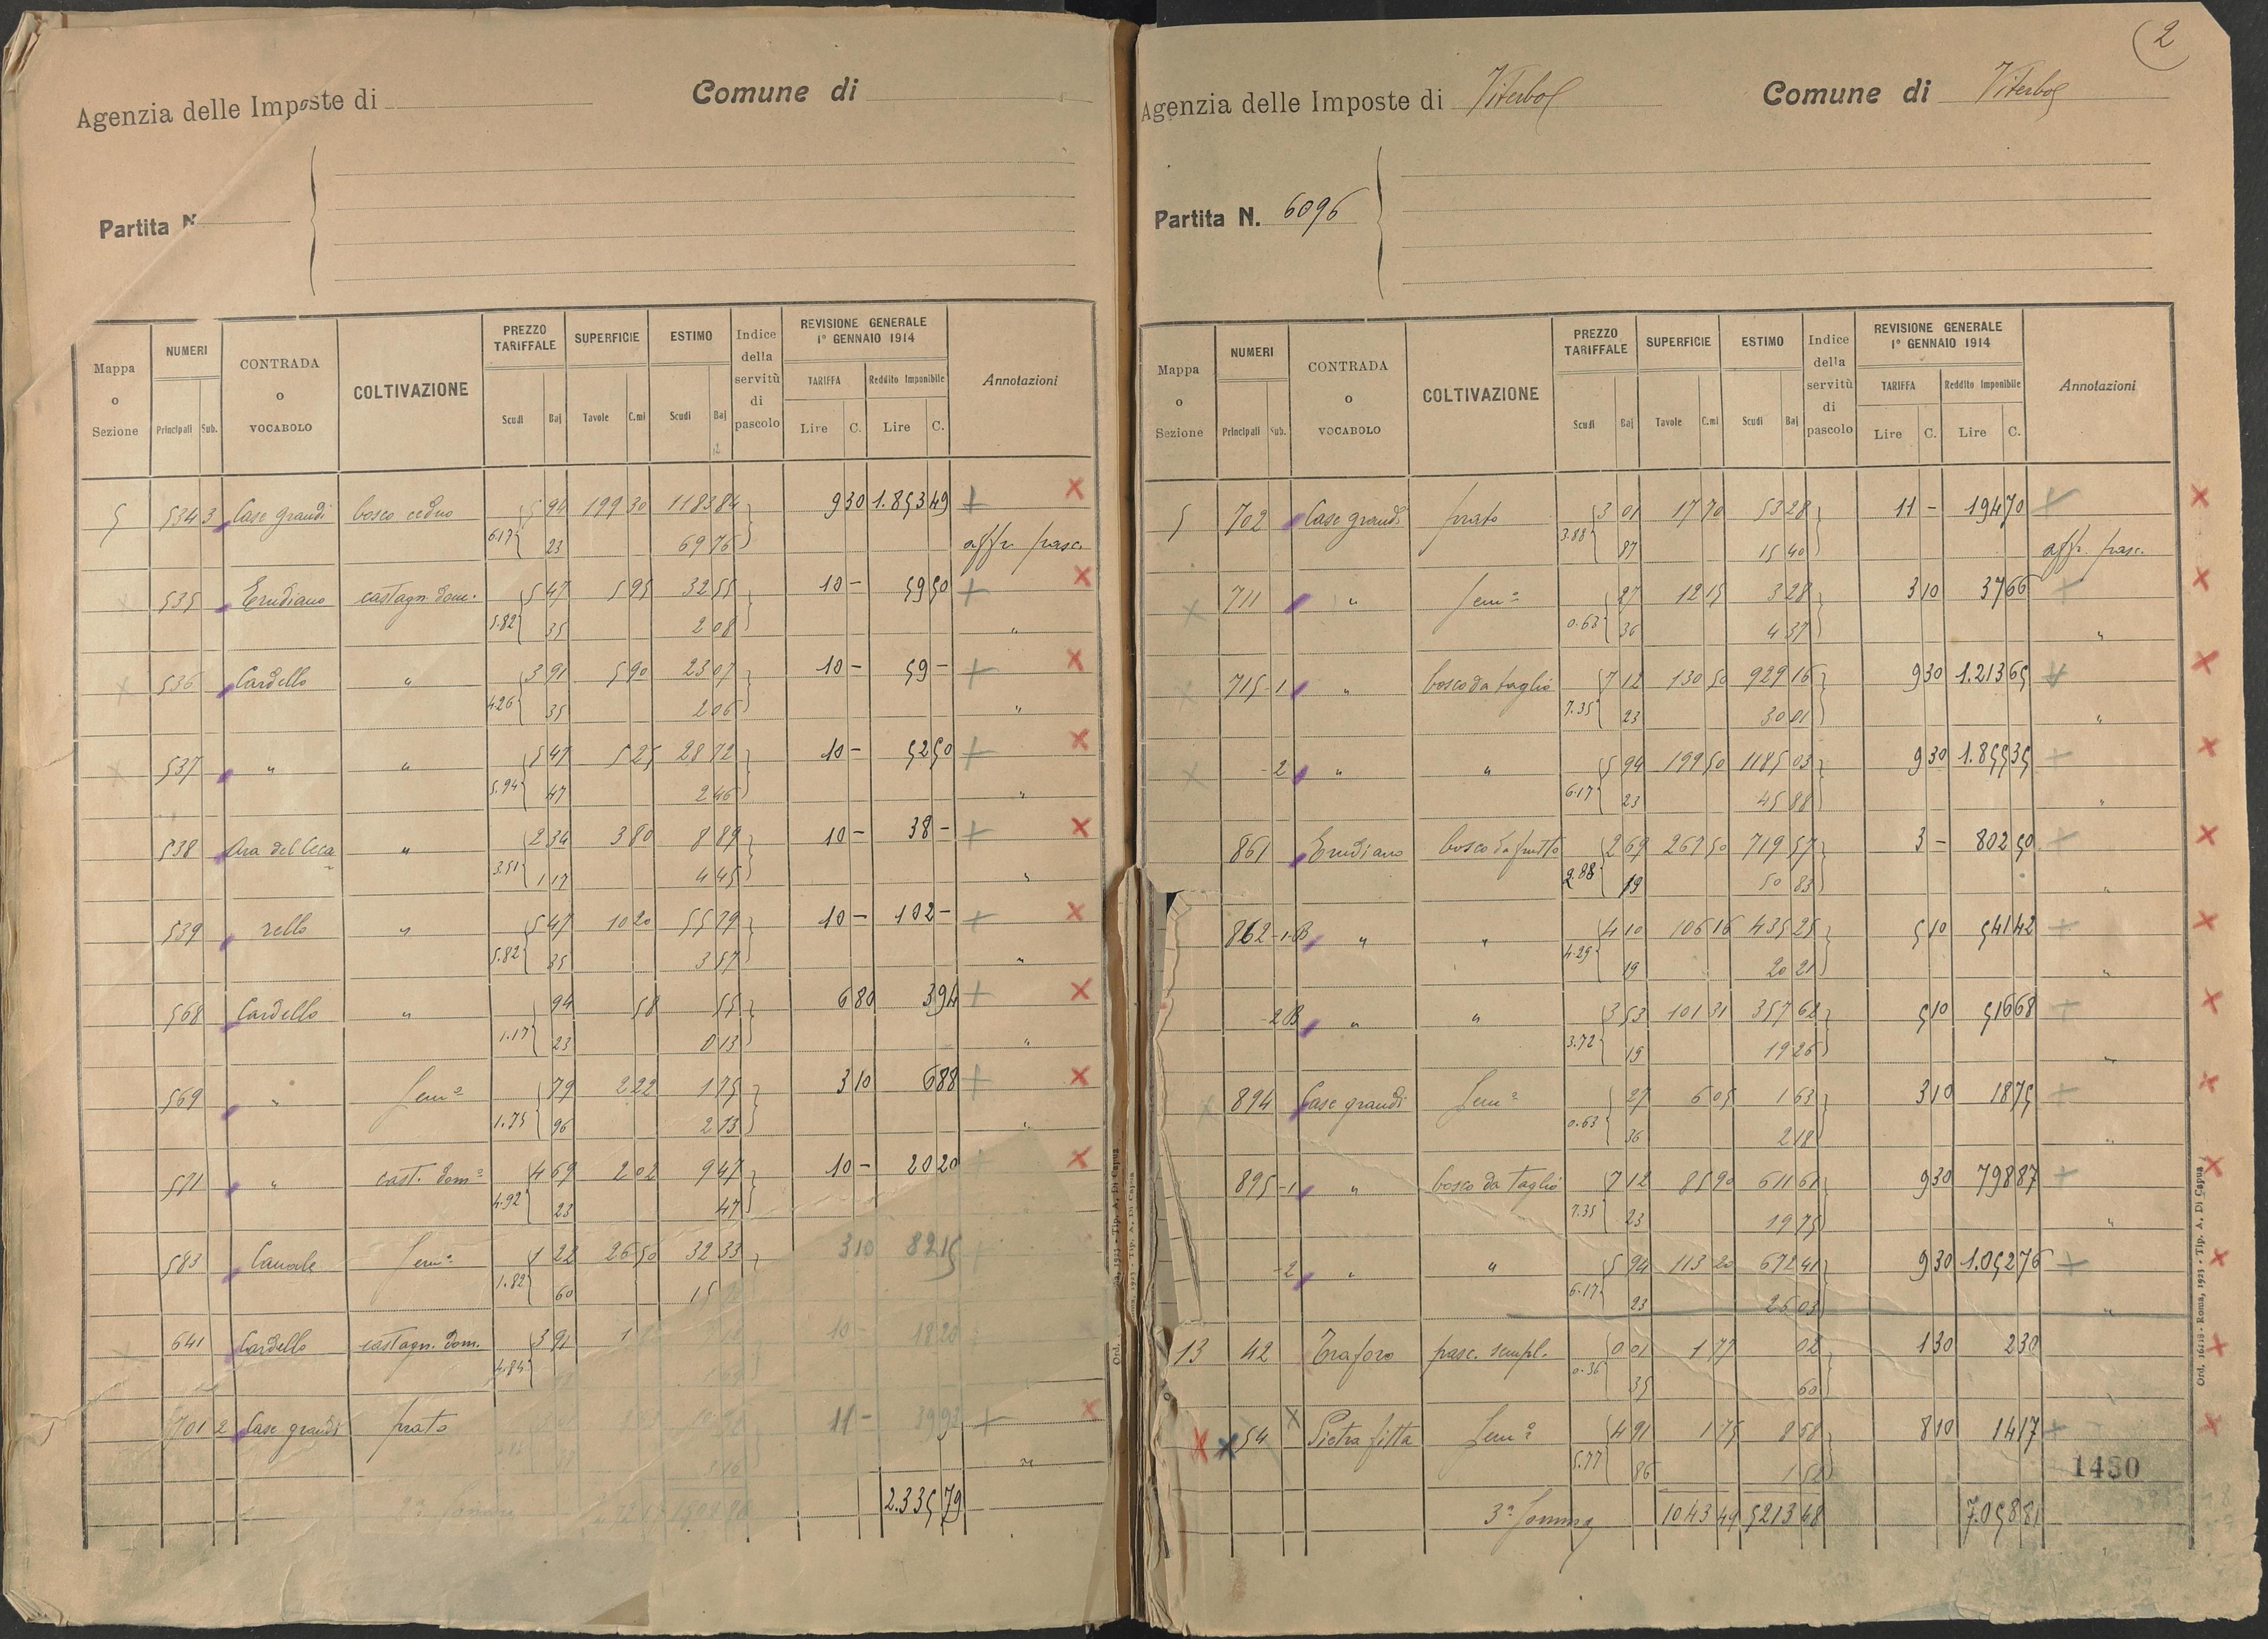 Agenzia delle Imposte di
Comune di
Partita N.
Mappa o Sezione
NUMERI
Principali Sub.
CONTRADA o VOCABOLO
COLTIVAZIONE
PREZZO TARIFFALE
Scudi Baj
SUPERFICIE
Tavole C.mi
ESTIMO
Scudi Baj
Indice della servitù di pascolo
REVISIONE GENERALE
1º GENNAIO 1914
TARIFFA
Lire C.
Reddito Imponibile
Lire C.
Annotazioni
5 534 3 Case grandi bosco ceduo 5 94 199 30 1183 84 9 30 1.853 49
6.17 23 69 76 affr. pasc.
535 Erudiano castagn. dom. 5 47 5 95 32 55 10 - 59 50
5.82 35 2 08 "
536 Cardello " 3 91 5 90 23 07 10 - 59 -
4.26 35 2 06 "
537 " " 5 47 5 25 28 72 10 - 52 50
5.94 47 2 46 "
538 Ara del Ceca " 2 34 3 80 8 89 10 - 38 -
3.51 1 17 4 45 "
539 rello " 5 47 10 20 55 79 10 - 102 -
5.82 35 3 57 "
568 Cardello " 94 58 55 6 80 3 94
1.17 23 0 13 "
569 " Semº 79 2 22 1 75 3 10 6 88
1.75 96 2 13 "
571 " cast. domº 4 69 2 02 9 47 10 - 20 20
4.92 23 47
583 Canale Semº 1 22 26 50 32 33 3 10 82 15
1.82 60 15
641 Cardello castagn. dom. 3 91 1 10 - 18 20
4.84
701 2 Case grandi prato 11 - 39 93
"
2.335 79
2
Agenzia delle Imposte di Viterbo
Comune di Viterbo
Partita N. 6096
Mappa o Sezione
NUMERI
Principali Sub.
CONTRADA o VOCABOLO
COLTIVAZIONE
PREZZO TARIFFALE
Scudi Baj
SUPERFICIE
Tavole C.mi
ESTIMO
Scudi Baj
Indice della servitù di pascolo
REVISIONE GENERALE
1º GENNAIO 1914
TARIFFA
Lire C.
Reddito Imponibile
Lire C.
Annotazioni
5 702 Case grandi prato 3 01 17 70 53 28 11 - 194 70
3.88 87 15 40 affr. pasc.
711 " Semº 27 12 15 3 28 3 10 37 66
0.63 36 4 37 "
715 -1 " bosco da taglio 7 12 130 50 929 16 9 30 1.213 65
7.35 23 30 01 "
-2 " " 5 94 199 50 1185 03 9 30 1.855 35
6.17 23 45 88 "
861 Erudiano bosco da frutto 2 69 267 50 719 57 3 - 802 50
2.88 19 50 83 "
862 -1-B " " 4 10 106 16 435 25 5 10 541 42
4.29 19 20 21 "
2B " " 3 53 101 31 357 62 5 10 516 68
3.72 19 19 26 "
894 Case grandi Semº 27 6 05 1 63 3 10 18 75
0.63 36 2 18 "
895 -1 " bosco da taglio 7 12 85 90 611 61 9 30 798 87
7.35 23 19 75 "
-2 " " 5 94 113 20 672 41 9 30 1.052 76
6.17 23 26 03 "
13 42 Traforo pasc. sempl. 0 01 1 77 02 1 30 2 30
0.36 35 60
54 Pietra fitta Semº 4 91 1 75 8 58 8 10 14 17
5.77 86 1 52
1430
3ª Somma 1043 49 5213 48 7.058 81
Ord. 1618 - Roma, 1923 - Tip. A. Di Capua